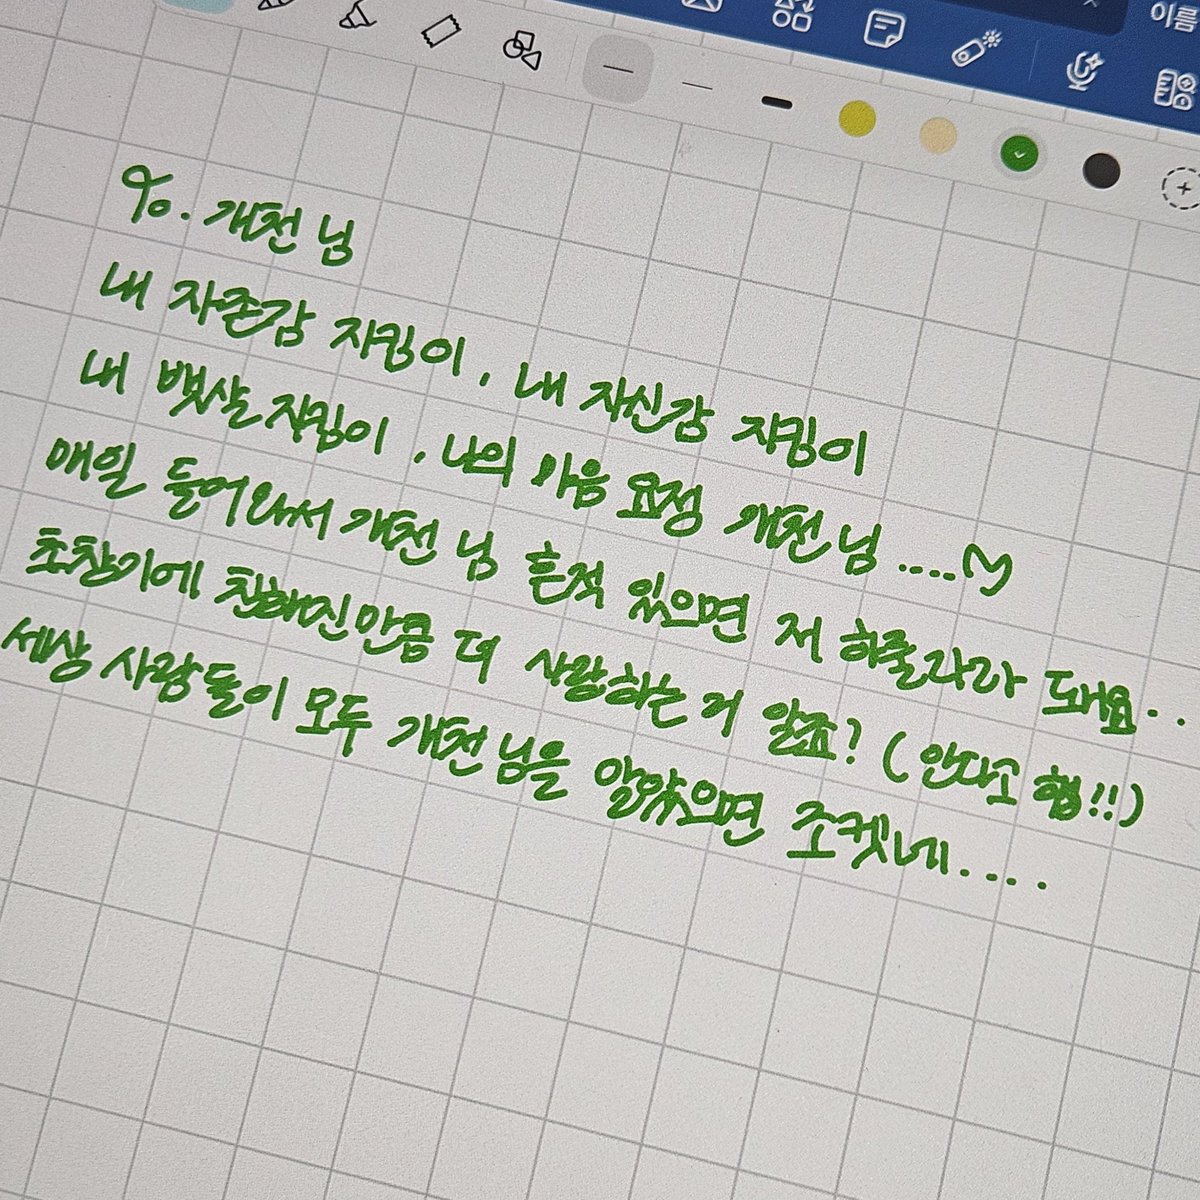 이름
To. 개천 님
내 자존감 지킴이, 내 자신감 지킴이
내 뱃살 지킴이, 나의 마음 요정 개천 님....
매일 들어와서 개천 님 흔적 있으면 저 히죽 돼요..
초창기에 친해진만큼 더 사랑하는 거 알죠? (안다고 햄!!)
세상 사람들이 모두 개천 님을 알았으면 조켓네....